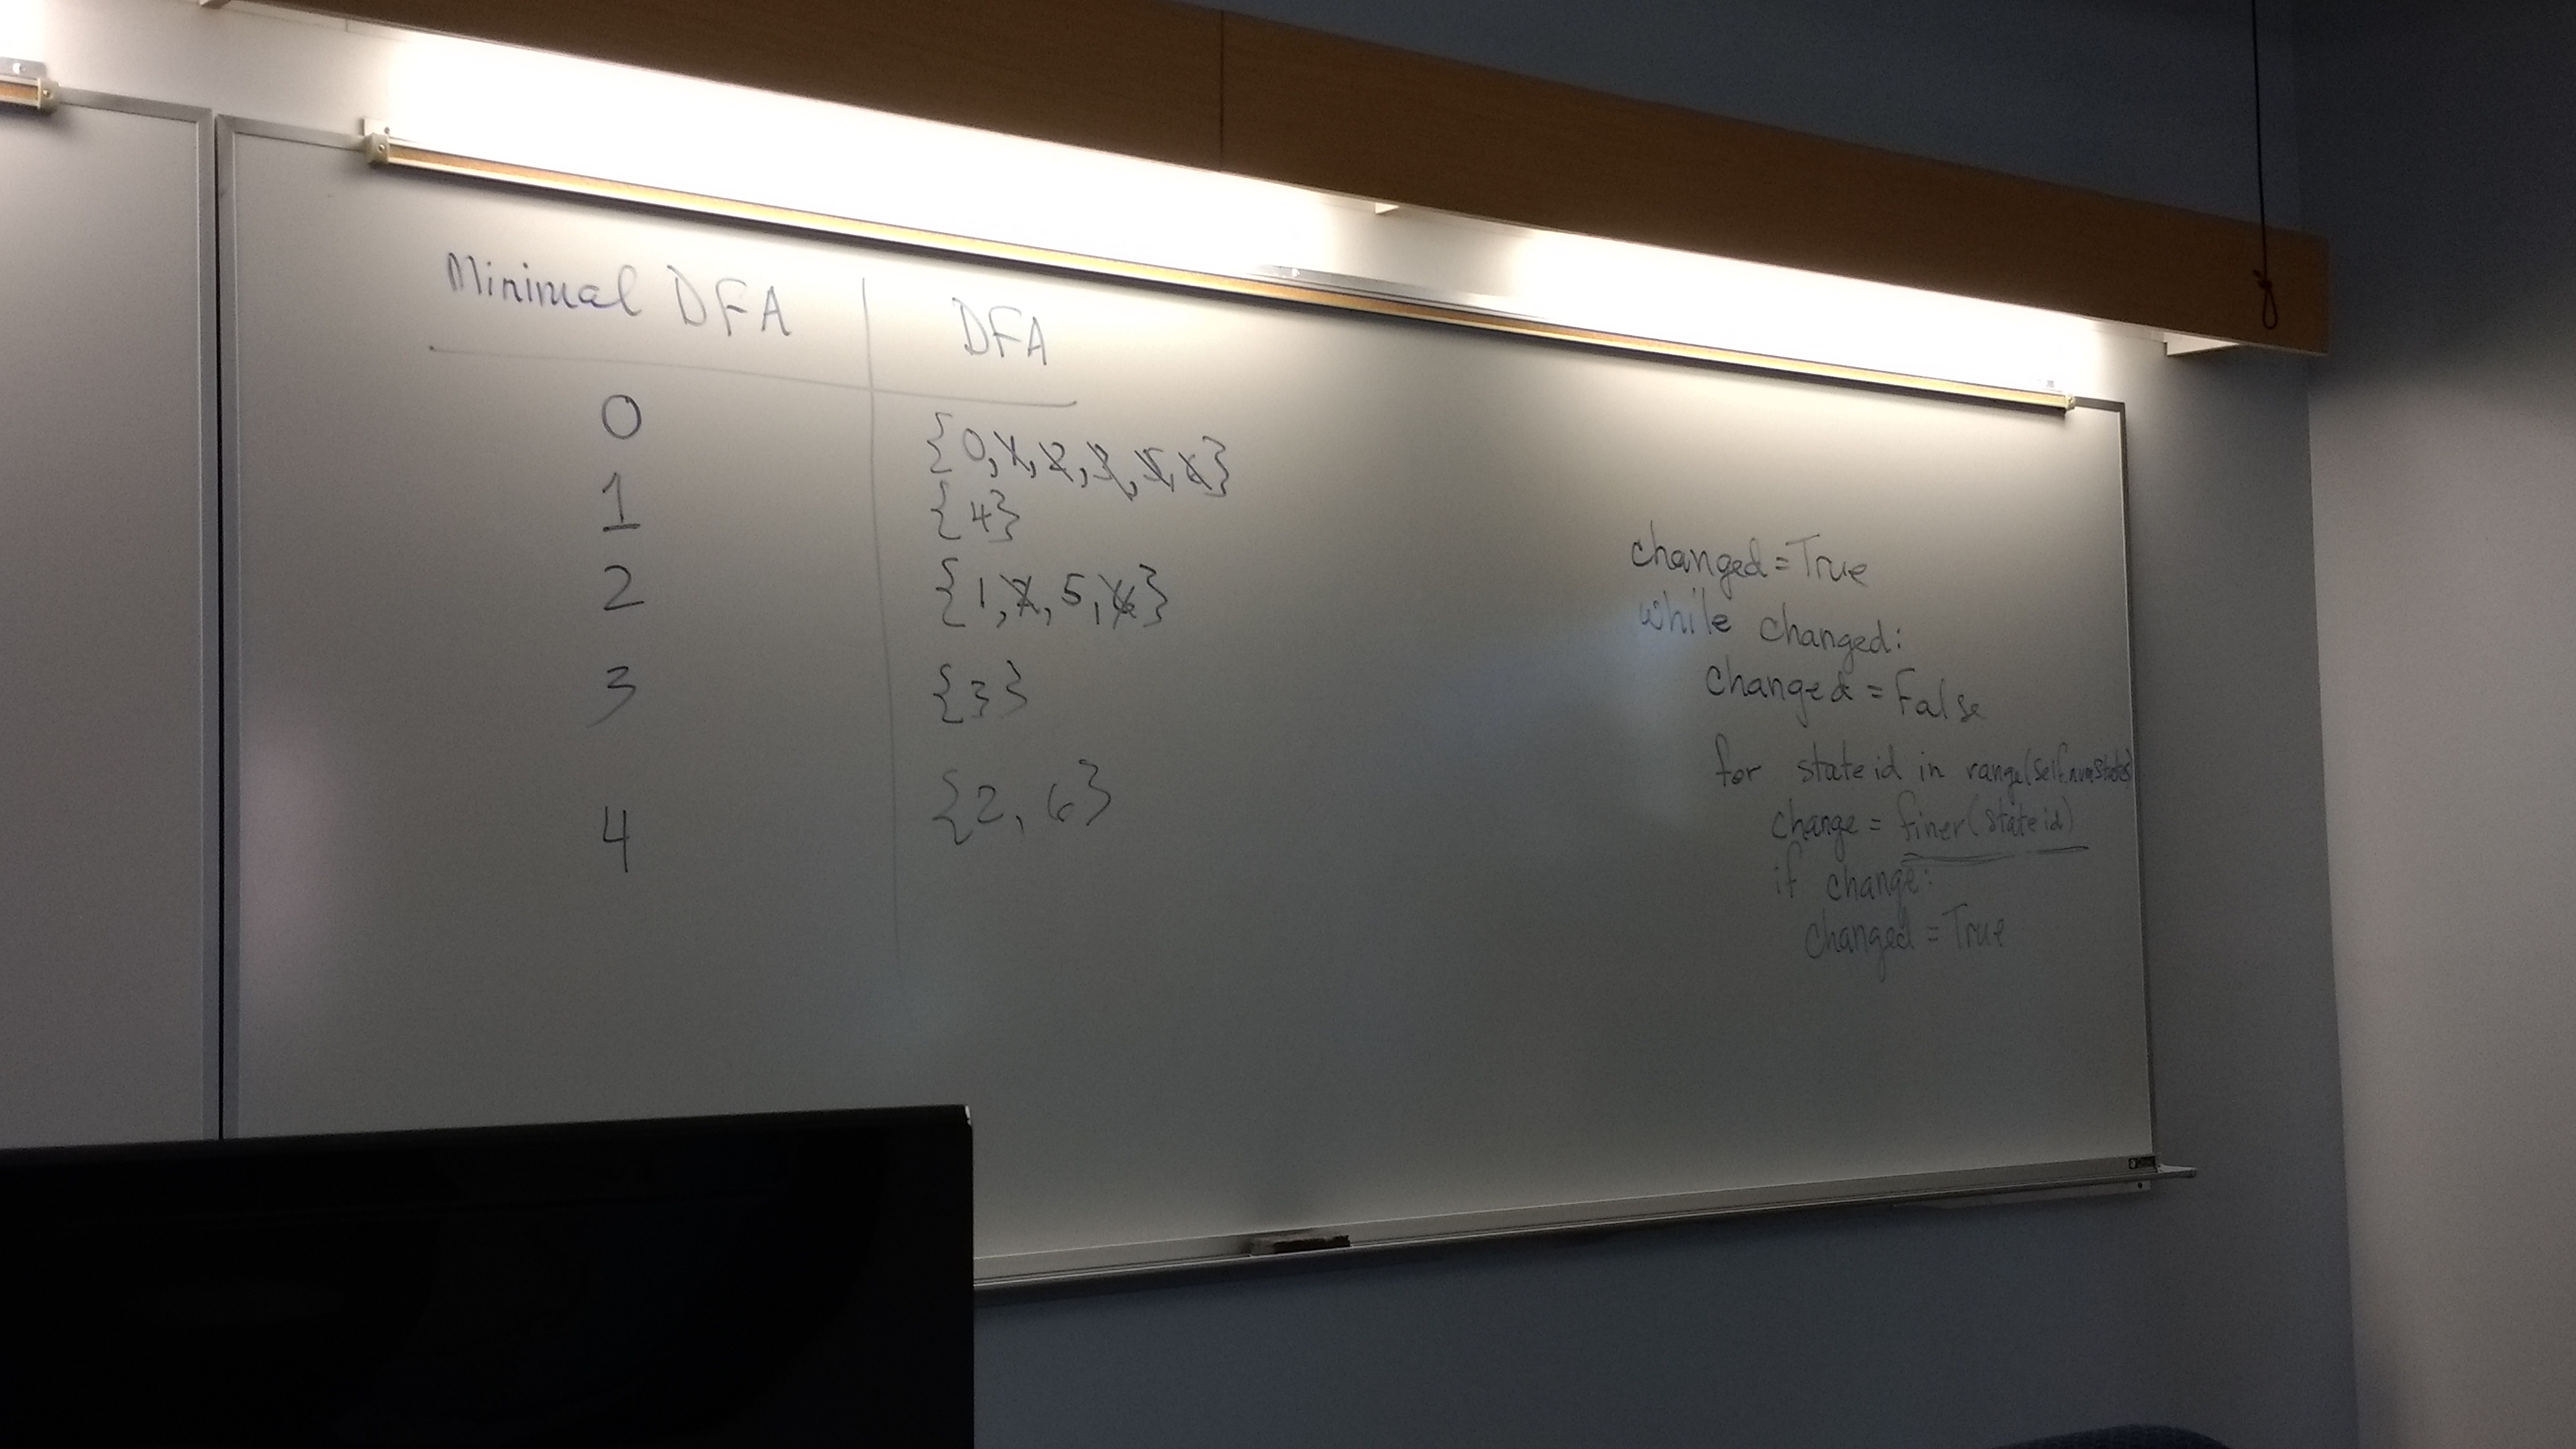 Minimal DFA | DFA
0 {0,1,2,3,5,6}
1 {4}
2 {1,2,5,6}
3 {3}
4 {2,6}
changed=True
while changed:
changed=False
for stateid in range(self.numStates)
change = finer(stateid)
if change:
changed = True